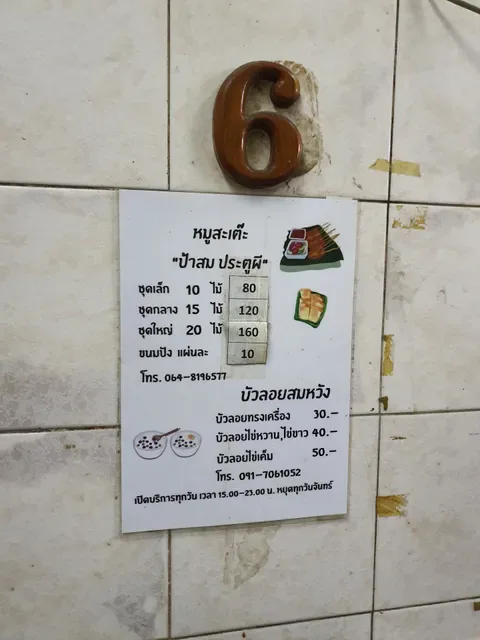 6
หมูสะเต๊ะ
"ป้าสม ประตูผี"
ชุดเล็ก 10 ไม้ 80
ชุดกลาง 15 ไม้ 120
ชุดใหญ่ 20 ไม้ 160
ขนมปัง แผ่นละ 10
โทร. 064-8196577
บัวลอยสมหวัง
บัวลอยทรงเครื่อง 30.-
บัวลอยไข่หวาน,ไข่ขาว 40.-
บัวลอยไข่เค็ม 50.-
โทร. 091-7061052
เปิดบริการทุกวัน เวลา 15.00-23.00 น. หยุดทุกวันจันทร์